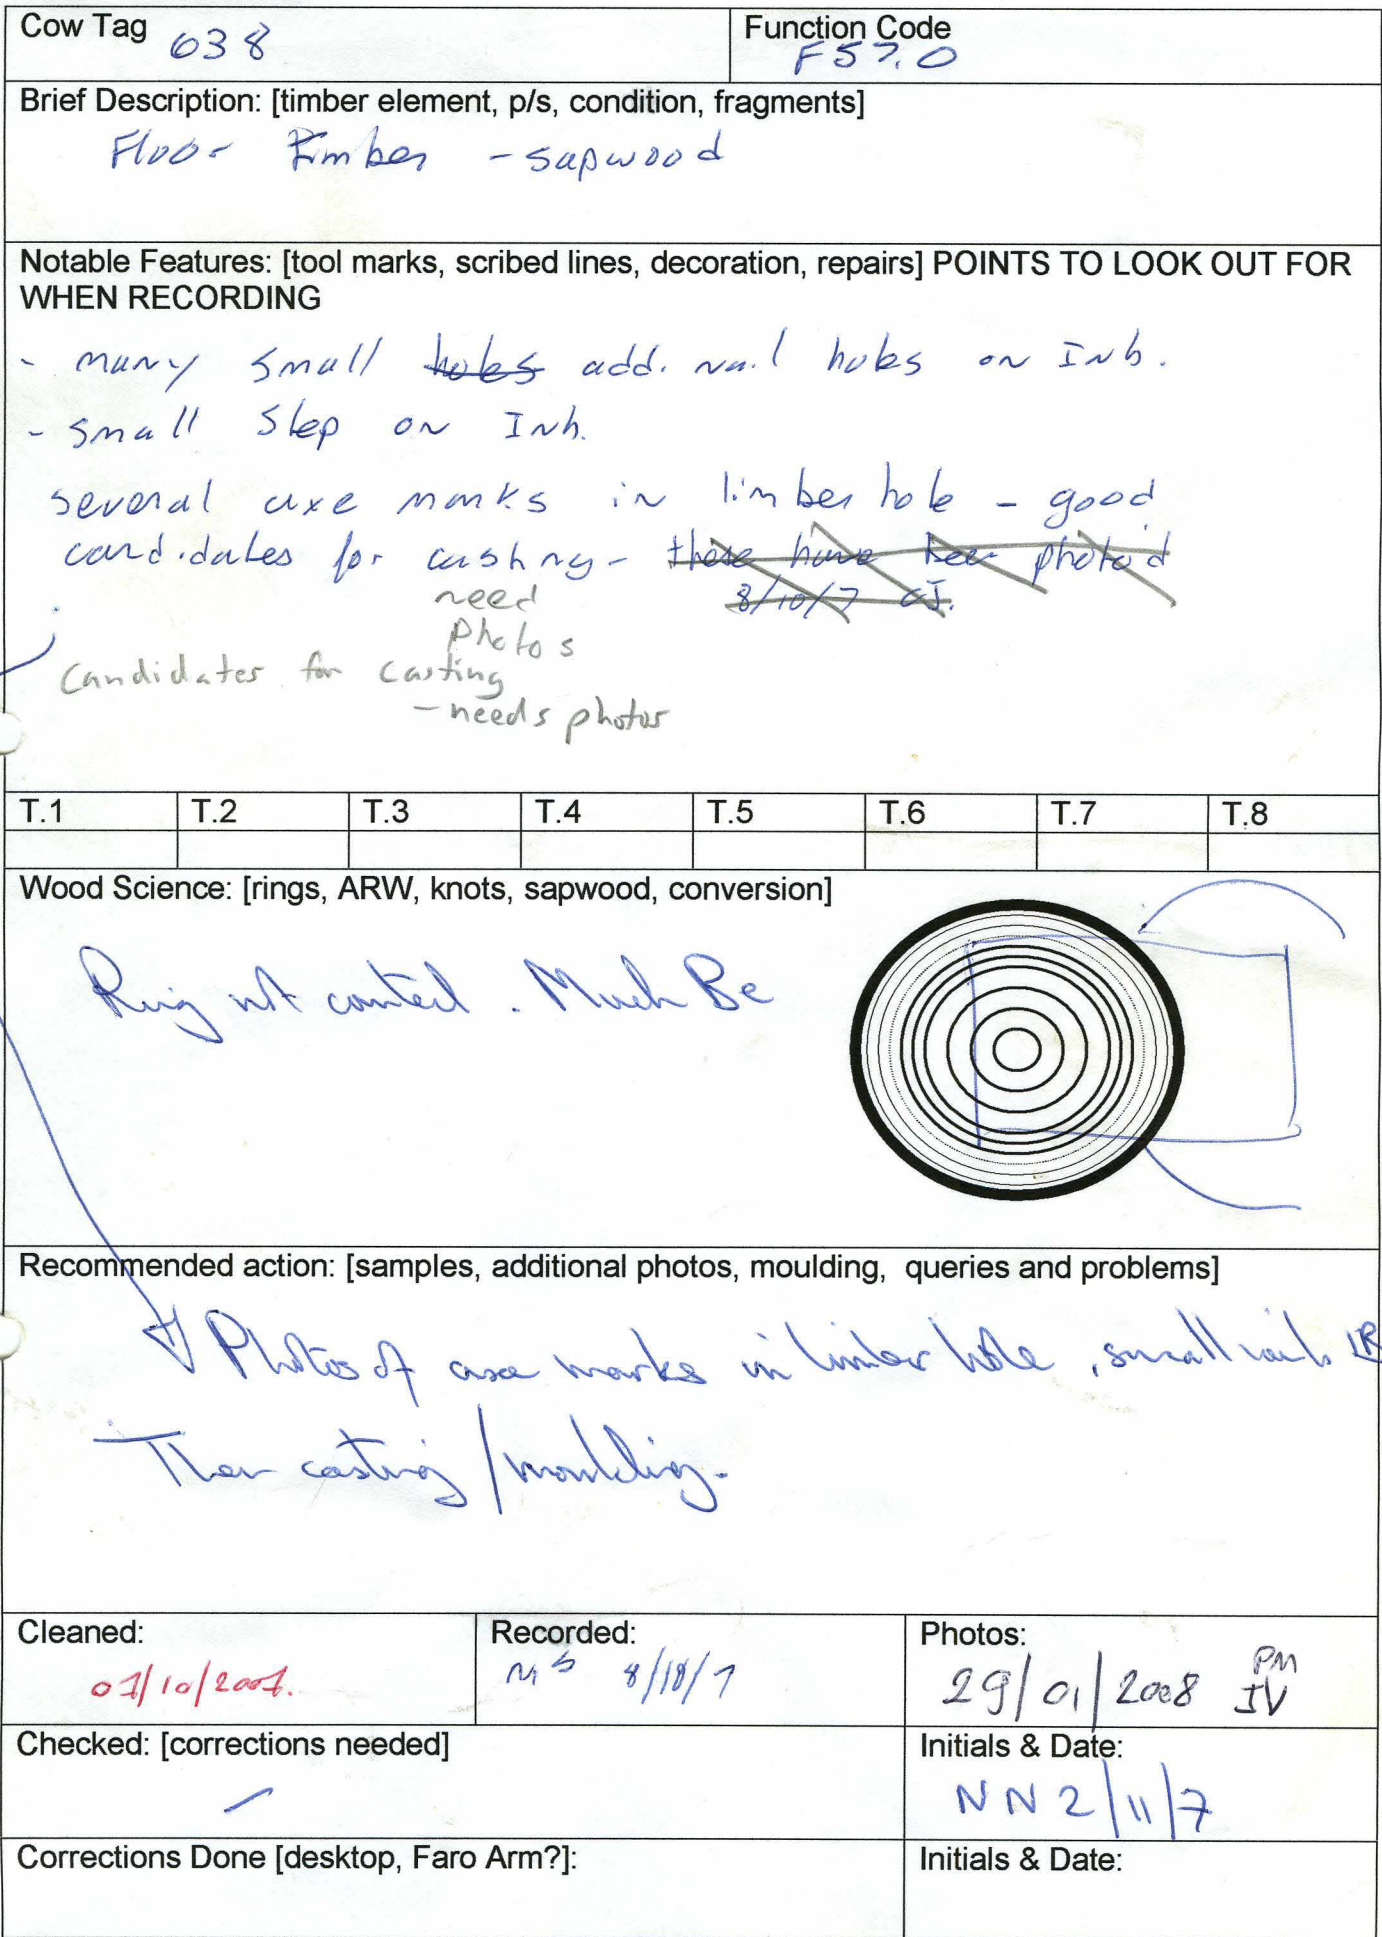 Cow Tag 638
Function Code F57.0
Brief Description: [timber element, p/s, condition, fragments]
Floor Timber - sapwood
Notable Features: [tool marks, scribed lines, decoration, repairs] POINTS TO LOOK OUT FOR
WHEN RECORDING
- many small holes add. nail holes on Inb.
- small Step on Inb.
several axe marks in limber hole - good
candidates for casting - these have been photo'd
8/10/7 CJ.
need
photos
candidates for casting
- needs photos
T.1 T.2 T.3 T.4 T.5 T.6 T.7 T.8
Wood Science: [rings, ARW, knots, sapwood, conversion]
Ring not counted. Much Be
Recommended action: [samples, additional photos, moulding, queries and problems]
Photos of axe marks in limber hole, small nails
Then casting/moulding.
Cleaned:
Recorded:
Photos:
01/10/2007.
8/10/7
29/01/2008 PM
IV
Checked: [corrections needed]
Initials & Date:
NN 2/11/7
Corrections Done [desktop, Faro Arm?]:
Initials & Date: